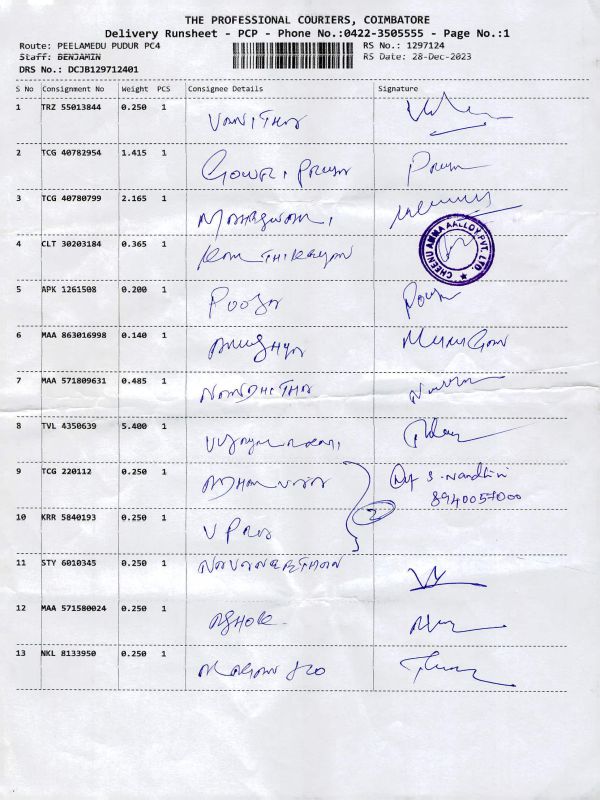 THE PROFESSIONAL COURIERS, COIMBATORE
Delivery Runsheet - PCP - Phone No.:0422-3505555 - Page No.:1
Route: PEELAMEDU PUDUR PC4 RS No.: 1297124
Staff: BENJAMIN RS Date: 28-Dec-2023
DRS No.: DCJB129712401
S No Consignment No Weight PCS Consignee Details Signature
1 TRZ 55013844 0.250 1 VANITHA
2 TCG 40782954 1.415 1 GOWRI PRIYA Priya
3 TCG 40780799 2.165 1 MAHESWARI
4 CLT 30203184 0.365 1 KARTHIKEYAN
CHEENU AMMA AALLOY PVT. LTD.
5 APK 1261508 0.200 1 POOJA
6 MAA 863016998 0.140 1
7 MAA 571809631 0.485 1 NANDHITHA
8 TVL 4350639 5.400 1
9 TCG 220112 0.250 1 S. Nandhini
8940057000
2
10 KRR 5840193 0.250 1
11 STY 6010345 0.250 1 NAVANEETHAN
12 MAA 571580024 0.250 1 ASHOK
13 NKL 8133950 0.250 1